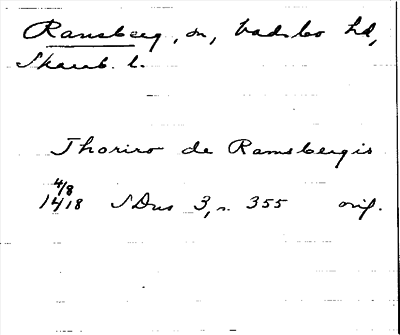 Ramsberg, sn, Vadsbo hd,
Skarab. l.
Thoriro de Ramsbergis
4/8
1418 SDns 3, n. 355 orig.